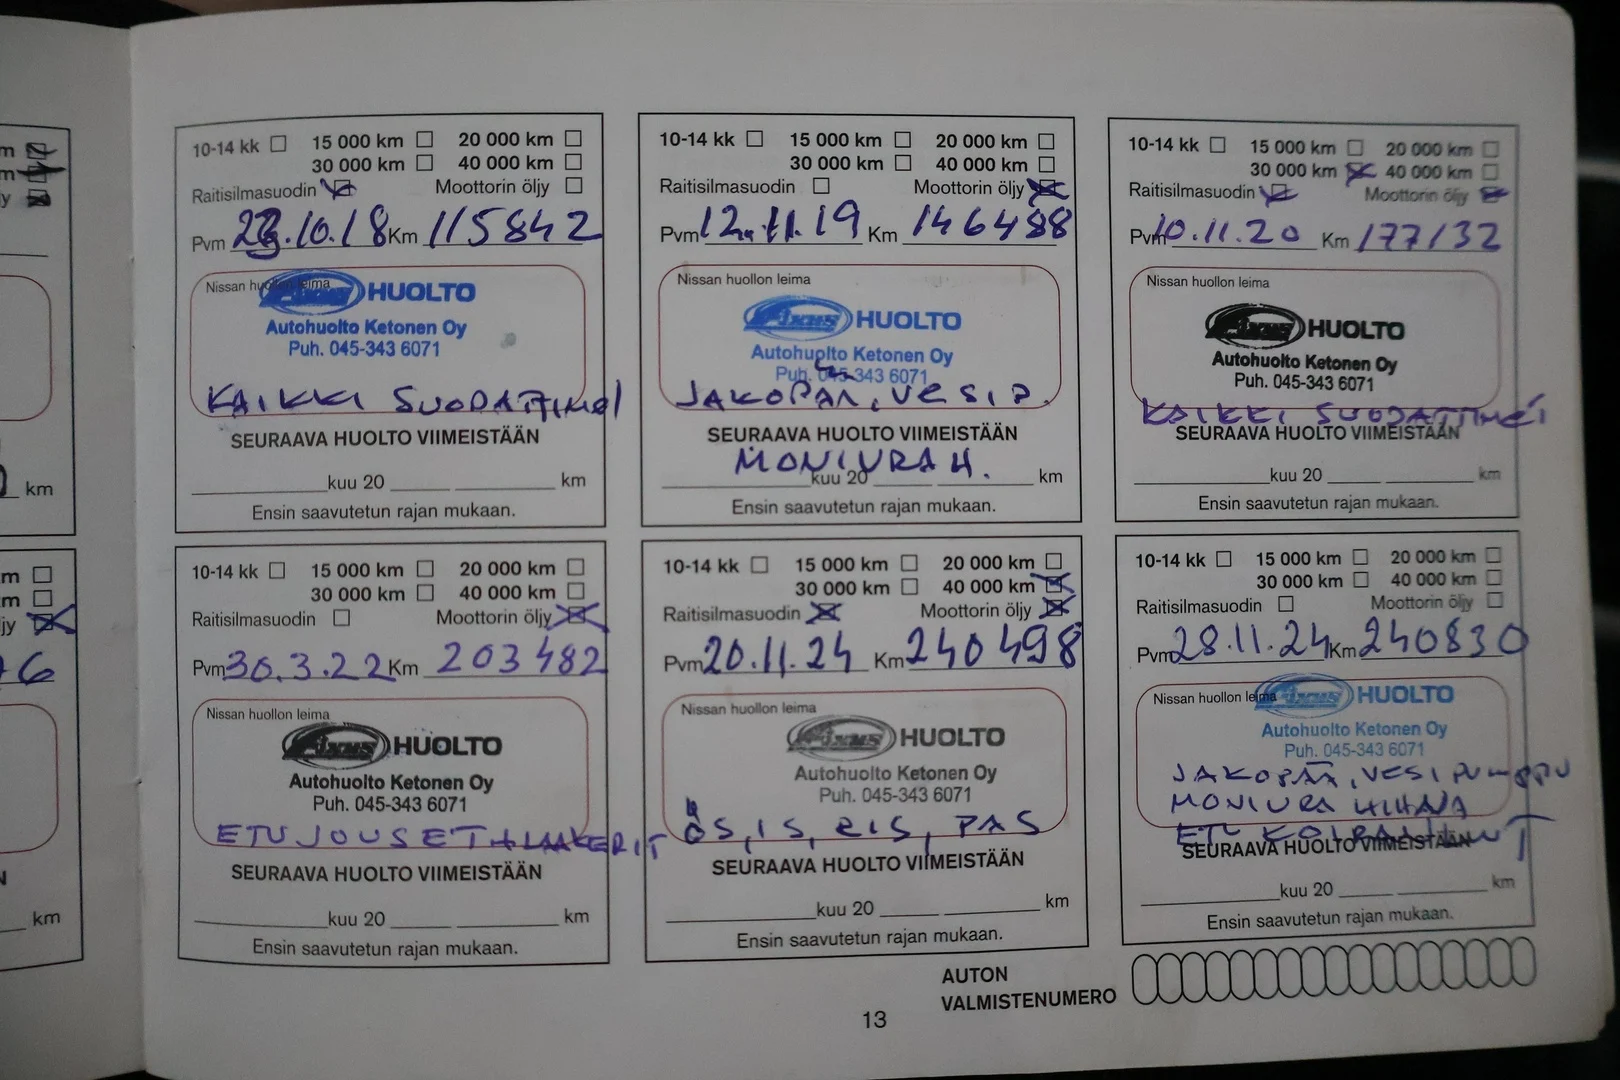 10-14 kk 15 000 km 20 000 km
30 000 km 40 000 km
Raitisilmasuodin Moottorin öljy
Pvm 23.10.18 Km 115842
Nissan huollon leima
HUOLTO
Autohuolto Ketonen Oy
Puh. 045-343 6071
KAIKKI SUODATTIMET
SEURAAVA HUOLTO VIIMEISTÄÄN
kuu 20 km
Ensin saavutetun rajan mukaan.
10-14 kk 15 000 km 20 000 km
30 000 km 40 000 km
Raitisilmasuodin Moottorin öljy
Pvm 12.11.19 Km 146488
Nissan huollon leima
HUOLTO
Autohuolto Ketonen Oy
Puh. 045-343 6071
JAKOPÄÄ, VESIP.
SEURAAVA HUOLTO VIIMEISTÄÄN
MONIURA H.
kuu 20 km
Ensin saavutetun rajan mukaan.
10-14 kk 15 000 km 20 000 km
30 000 km 40 000 km
Raitisilmasuodin Moottorin öljy
Pvm 10.11.20 Km 177132
Nissan huollon leima
HUOLTO
Autohuolto Ketonen Oy
Puh. 045-343 6071
KAIKKI SUODATTIMET
SEURAAVA HUOLTO VIIMEISTÄÄN
kuu 20 km
Ensin saavutetun rajan mukaan.
10-14 kk 15 000 km 20 000 km
30 000 km 40 000 km
Raitisilmasuodin Moottorin öljy
Pvm 30.3.22 Km 203482
Nissan huollon leima
HUOLTO
Autohuolto Ketonen Oy
Puh. 045-343 6071
ETUJOUSET+LAAKERIT
SEURAAVA HUOLTO VIIMEISTÄÄN
kuu 20 km
Ensin saavutetun rajan mukaan.
10-14 kk 15 000 km 20 000 km
30 000 km 40 000 km
Raitisilmasuodin Moottorin öljy
Pvm 20.11.24 Km 240498
Nissan huollon leima
HUOLTO
Autohuolto Ketonen Oy
Puh. 045-343 6071
ÖS, IS, RIS, PAS
SEURAAVA HUOLTO VIIMEISTÄÄN
kuu 20 km
Ensin saavutetun rajan mukaan.
10-14 kk 15 000 km 20 000 km
30 000 km 40 000 km
Raitisilmasuodin Moottorin öljy
Pvm 28.11.24 Km 240830
Nissan huollon leima
HUOLTO
Autohuolto Ketonen Oy
Puh. 045-343 6071
JAKOPÄÄ, VESIPUMPPU
MONIURA HIHNA
ETU
SEURAAVA HUOLTO VIIMEISTÄÄN
kuu 20 km
Ensin saavutetun rajan mukaan.
km
km
AUTON
VALMISTENUMERO
13